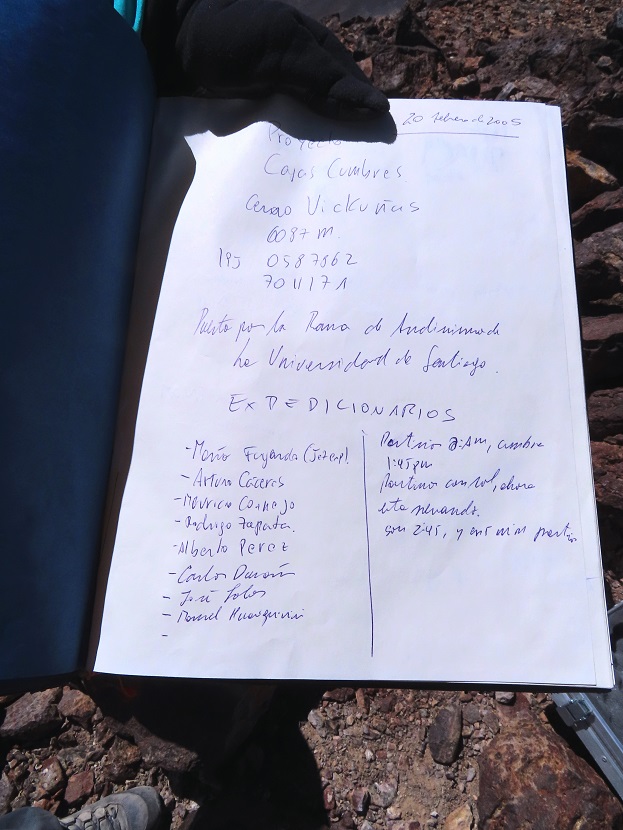 20 febrero de 2005
Proyecto
Cajas Cumbres
Cerro Vickuñas
6087 m.
19J 0587862
7011171
Puesto por la Rama de Andinismo de
La Universidad de Santiago.
EXPEDICIONARIOS
- María Fernanda
- Arturo Cáceres
- Mauricio Cornejo
- Rodrigo Zapata.
- Alberto Perez
- Carlos Durán
- José
- Manuel
-
Partimos AM, cumbre
1:45pm
Partimos con sol, ahora
esta nevando.
son 2:45, y en 5 min